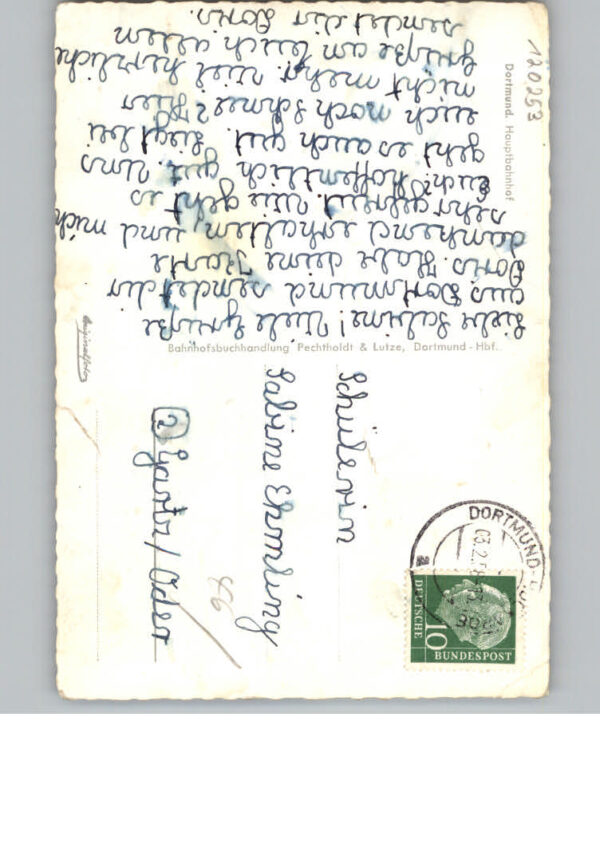 Liebe Sabine! Viele Grüße
aus Dortmund sendet dir
Doris. Habe deine Karte
dankend erhalten, und mich
sehr gefreut. Wie geht es
euch? Hoffentlich gut. Uns
geht es auch gut. Liegt bei
euch noch Schnee? Hier
nicht mehr. Viel herzliche
Grüße an Euch allen
sendet dir Doris.
Dortmund. Hauptbahnhof
120253
Bahnhofsbuchhandlung Pechtholdt & Lutze, Dortmund - Hbf.
Originalfoto
Schülerin
Sabine
2 Gartz/Oder
DORTMUND
DEUTSCHE
BUNDESPOST
10